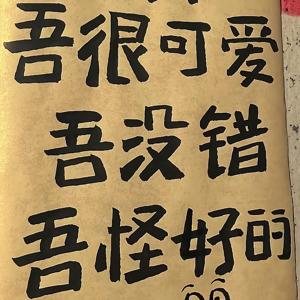 吾很可爱
吾没错
吾怪好的